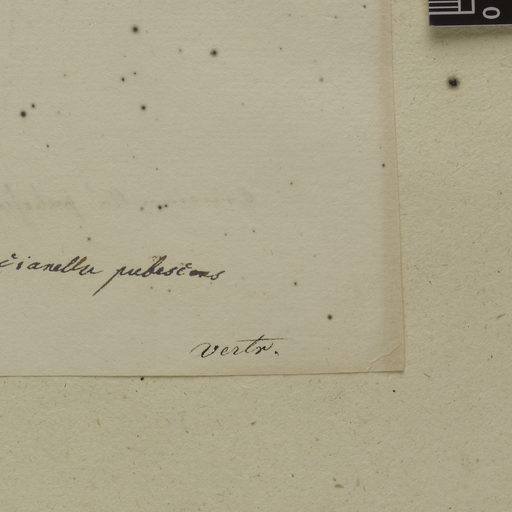 cianella pubescens
vertr.